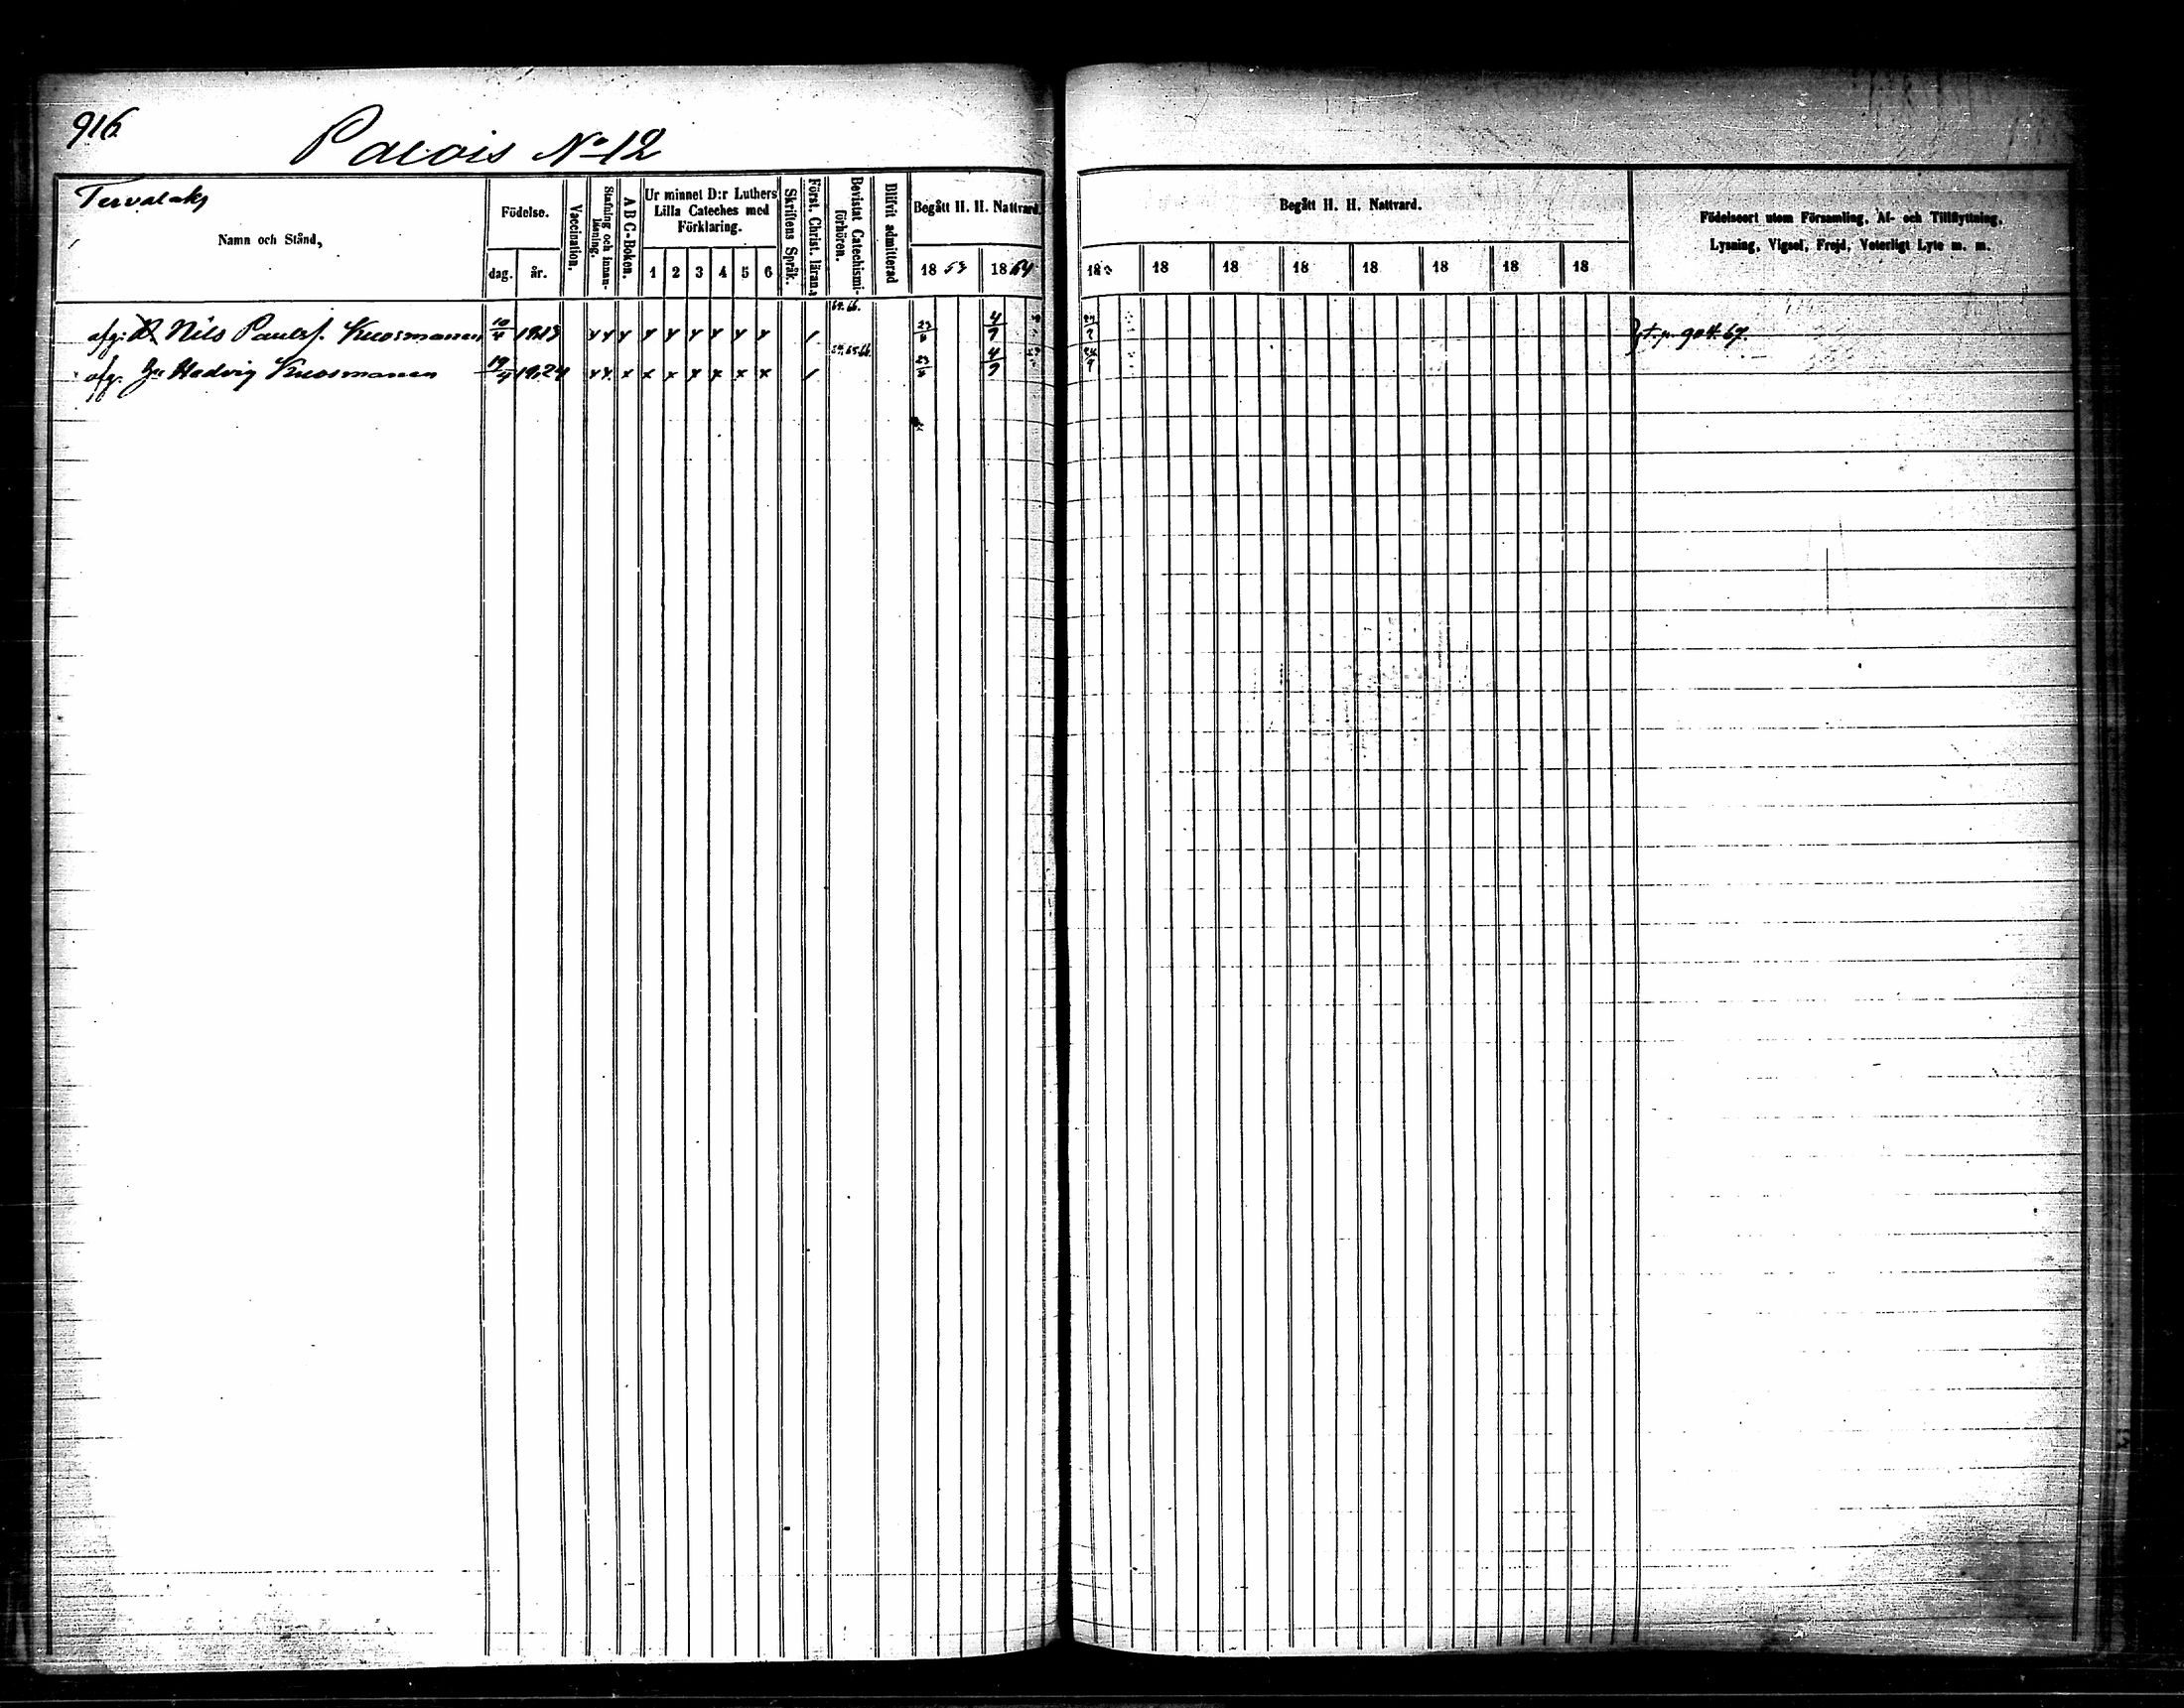 916.
Palois No 12
Tervalaks
Namn och Stånd,
Födelse.
dag. år.
Vaccination.
Stafning och innan-läsning.
A B C-Boken.
Ur minnet D:r Luthers
Lilla Cateches med
Förklaring.
1 2 3 4 5 6
Skriftens Språk.
Först. Christ. läran.
Bevistat Catechismi-förhören.
Blifvit admitterad
Begått H. H. Nattvard.
18 18 64
Begått H. H. Nattvard.
18 18 18 18 18 18 18
Födelseort utom Församling, Af- och Tillflyttning,
Lysning, Vigsel, Frejd, Veterligt Lyte m. m.
64. 66.
afg. Nils Paulsf. Kuosmanen 10/4 1813 x x x x x x x x x / 23 4/9 24 t. p. 904. 67.
65 66.
afg. Hu Hedvig Kuosmanen 19/4 1824 x x x x x x x x x / 23 4/9 24